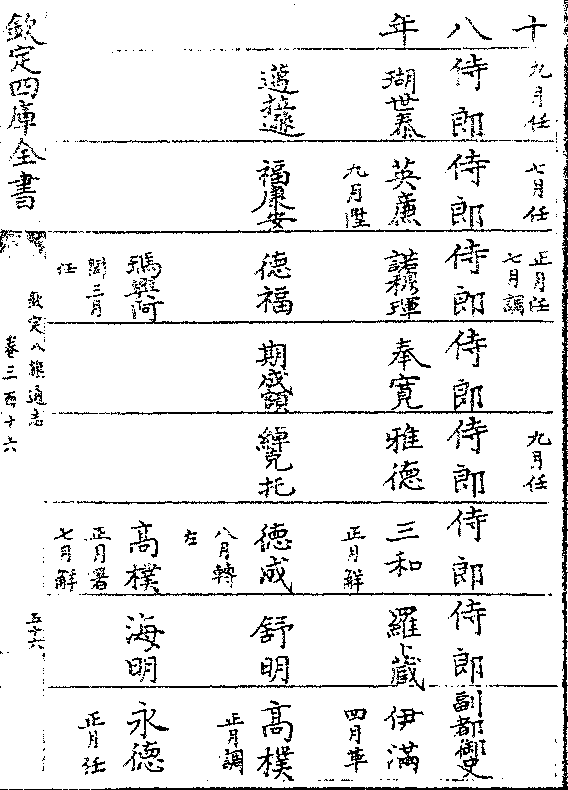 十八年
九月任
侍郎
瑚世泰
邁拉遜
七月任
侍郎
英廉
九月陞
福康安
正月任
七月調
侍郎
諾穆琿
德福
瑪興阿
閏三月
任
侍郎
奉寛
期成額
九月任
侍郎
雅德
綽克托
侍郎
三和
正月解
德成
八月轉
左
高樸
正月署
七月解
侍郎
羅卜藏
舒明
海明
副都御史
伊滿
四月革
高樸
正月調
永德
正月任
欽定四庫全書
欽定八旗通志
卷三百十六
五十六